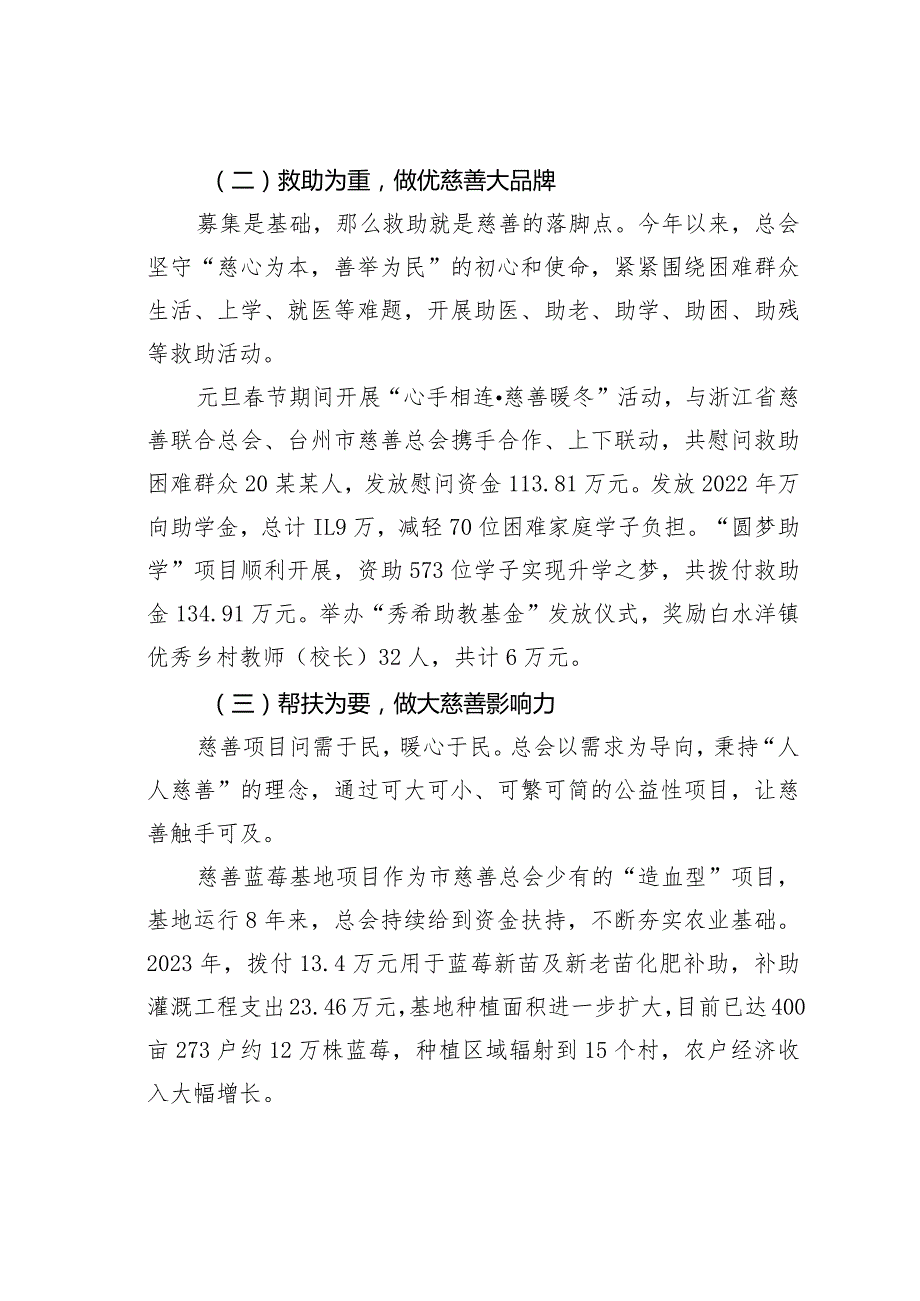 （二）救助为重，做优慈善大品牌
募集是基础，那么救助就是慈善的落脚点。今年以来，总会
坚守“慈心为本，善举为民”的初心和使命，紧紧围绕困难群众
生活、上学、就医等难题，开展助医、助老、助学、助困、助残
等救助活动。
元旦春节期间开展“心手相连•慈善暖冬”活动，与浙江省慈
善联合总会、台州市慈善总会携手合作、上下联动，共慰问救助
困难群众 20 某某人，发放慰问资金 113.81 万元。发放 2022 年万
向助学金，总计 IL9 万，减轻 70 位困难家庭学子负担。“圆梦助
学”项目顺利开展，资助 573 位学子实现升学之梦，共拨付救助
金 134.91 万元。举办“秀希助教基金”发放仪式，奖励白水洋镇
优秀乡村教师（校长）32 人，共计 6 万元。
（三）帮扶为要，做大慈善影响力
慈善项目问需于民，暖心于民。总会以需求为导向，秉持“人
人慈善”的理念，通过可大可小、可繁可简的公益性项目，让慈
善触手可及。
慈善蓝莓基地项目作为市慈善总会少有的“造血型”项目，
基地运行 8 年来，总会持续给到资金扶持，不断夯实农业基础。
2023 年，拨付 13.4 万元用于蓝莓新苗及新老苗化肥补助，补助
灌溉工程支出 23.46 万元，基地种植面积进一步扩大，目前已达 400
亩 273 户约 12 万株蓝莓，种植区域辐射到 15 个村，农户经济收
入大幅增长。